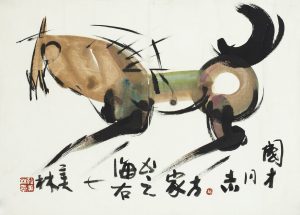 國才
同志
方家
正之
海右
七
美林